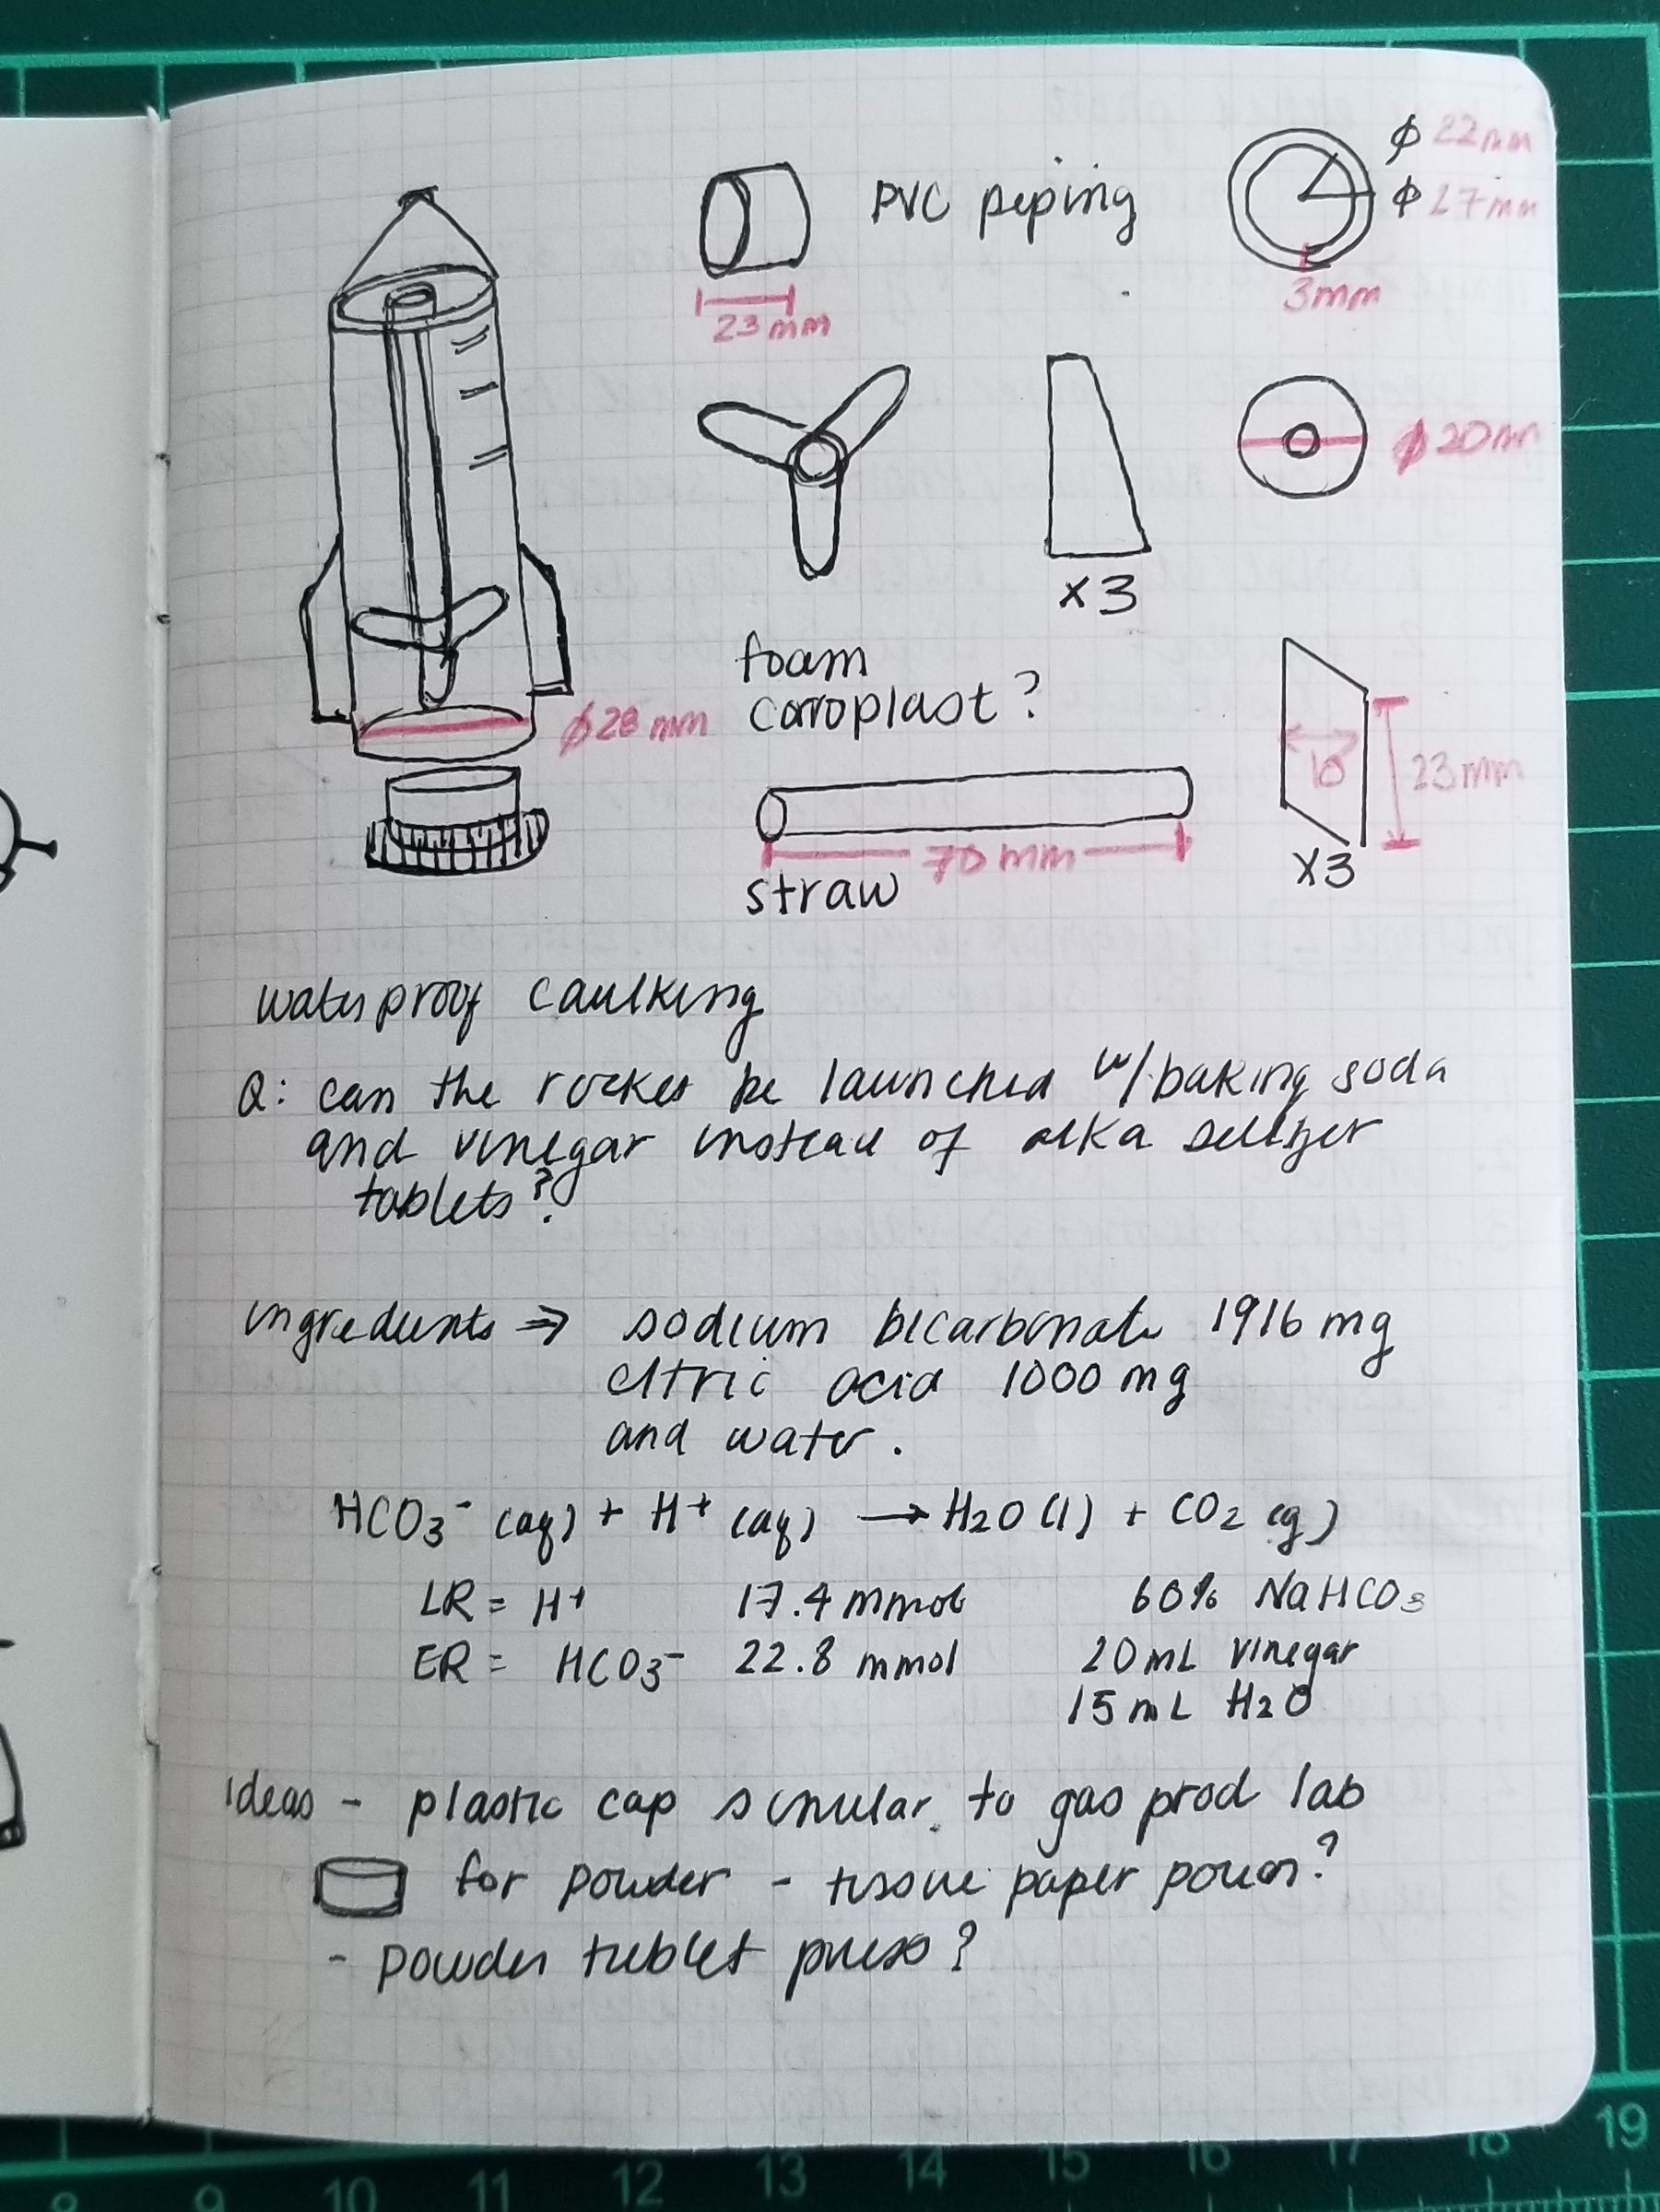 PVC piping
ϕ 22mm
ϕ 27mm
3mm
23 mm
ϕ20mm
x3
foam
coroplast?
ϕ28 mm
10
23mm
x3
70 mm
straw
waterproof caulking
Q: can the rocket be launched w/baking soda
and vinegar instead of alka seltzer
tablets?
ingredients ⇒ sodium bicarbonate 1916 mg
citric acid 1000 mg
and water.
HCO3⁻ (aq) + H⁺ (aq) → H2O (l) + CO2 (g)
LR = H⁺ 17.4 mmol 60% NaHCO3
ER = HCO3⁻ 22.8 mmol 20 mL vinegar
15 mL H2O
ideas - plastic cap similar to gas prod lab
for powder - tissue paper pouch?
- powder tablet press?
8 9 10 11 12 13 14 15 16 17 18 19